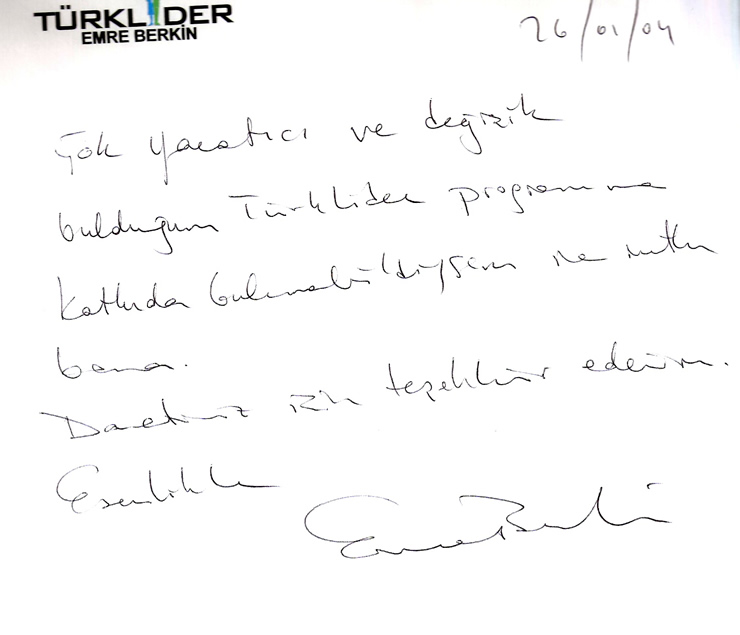 TÜRKLİDER
EMRE BERKİN
26/01/04
Çok yaratıcı ve değişik
bulduğum Türklider programına
katkıda bulunabildiysem ne mutlu
bana.
Davetiniz için teşekkür ederim.
Esenlikle
Emre Berkin